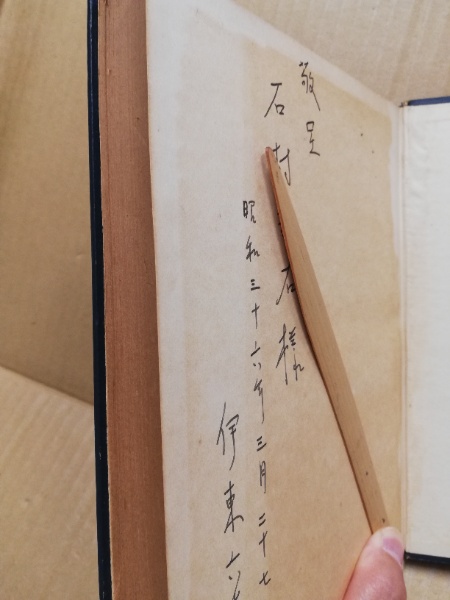 敬呈
石村 石様
昭和三十六年三月二十七
伊東六